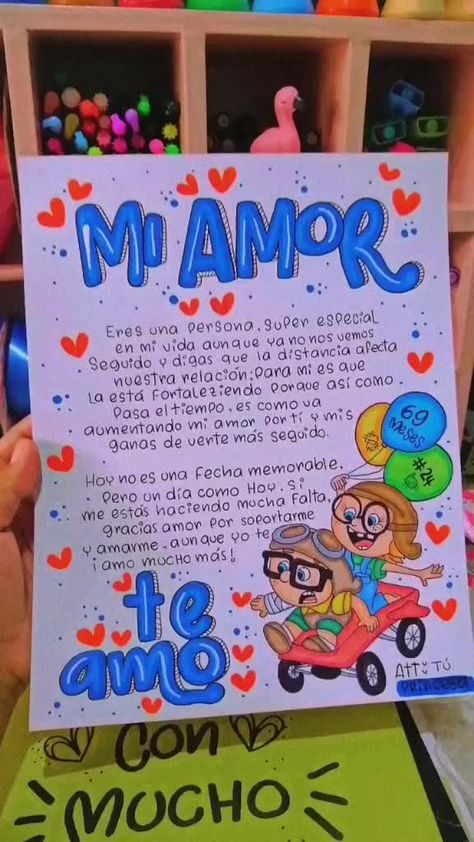 MI AMOR
Eres una persona, super especial
en mi vida aunque ya no nos vemos
seguido y digas que la distancia afecta
nuestra relación; para mi es que
la está fortaleziendo porque así como
pasa el tiempo, es como va
aumentando mi amor por tí y mis
ganas de verte más seguido.
Hoy no es una fecha memorable,
pero un día como Hoy, si
me estás haciendo mucha falta,
gracias amor por soportarme
y amarme, aunque yo te
¡amo mucho más!
te
amo
69
meses
#24
Att: Tú
princesa
Con
MUCHO